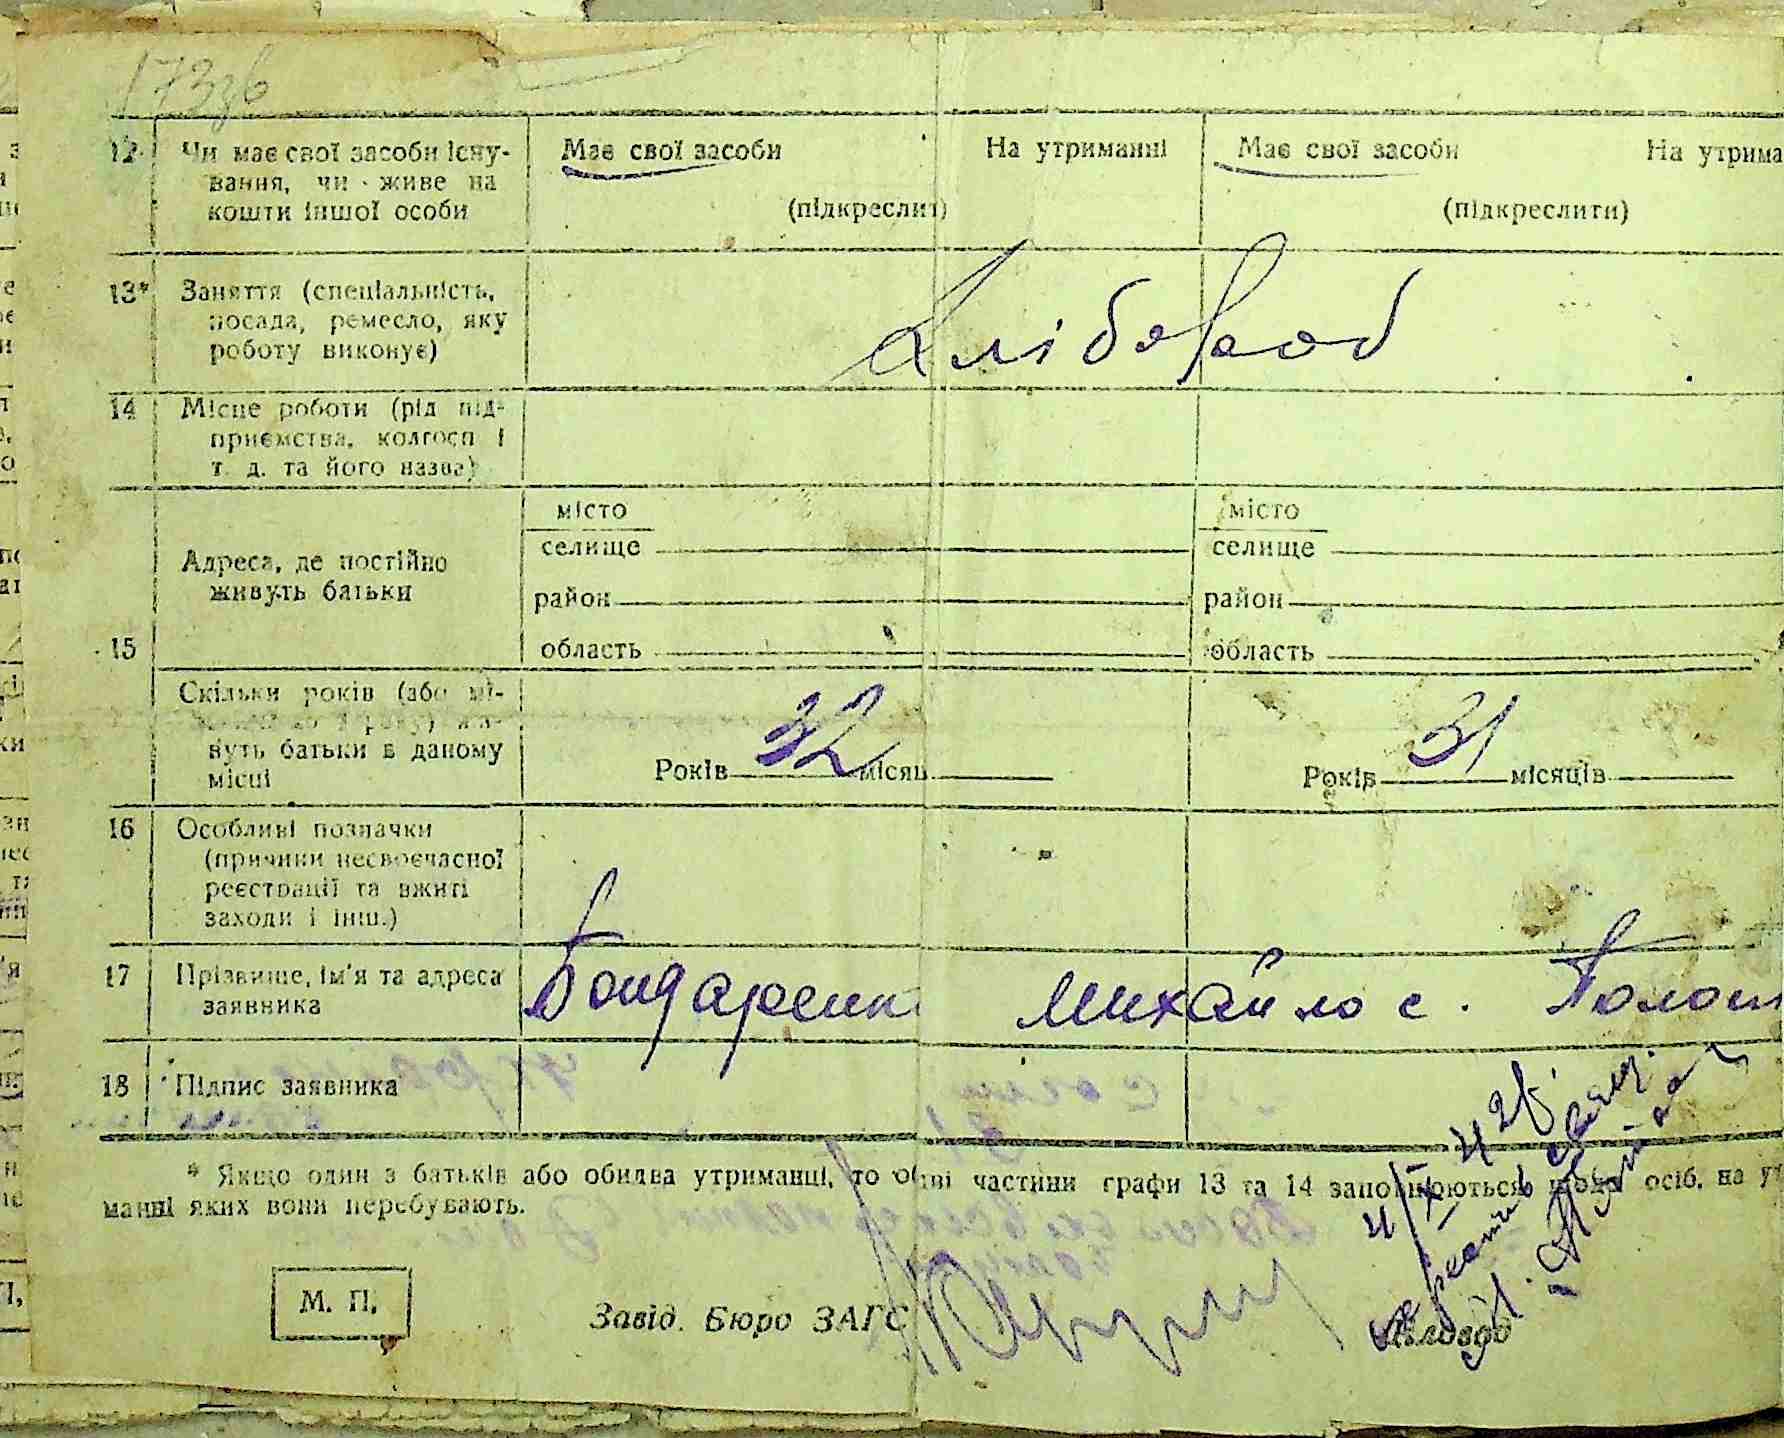 173зв
12 Чи має свої засоби існу- Має свої засоби На утриманні Має свої засоби На утрима
вання, чи живе на
кошти іншої особи (підкреслит) (підкреслити)
13* Заняття (спеціальність,
посада, ремесло, яку Хлібороб
роботу виконує)
14 Місце роботи (рід під-
приємства, колгосп і
т. д. та його назва)
місто місто
Адреса, де постійно селище селище
живуть батьки район район
15 область область
Скільки років (або мі-
вуть батьки в даному 32 31
місці Років місяц Років місяців
16 Особливі позначки
(причини несвоєчасної
реєстрації та вжиті
заходи і інш.)
17 Прізвище, ім'я та адреса Бондаренк Михайло с. Полош
заявника
18 Підпис заявника
* Якщо один з батьків або обидва утриманці, то о частини графи 13 та 14 заповнюються щодо осіб, на ут
манні яких вони перебувають.
М. П. Завід. Бюро ЗАГС Діловод